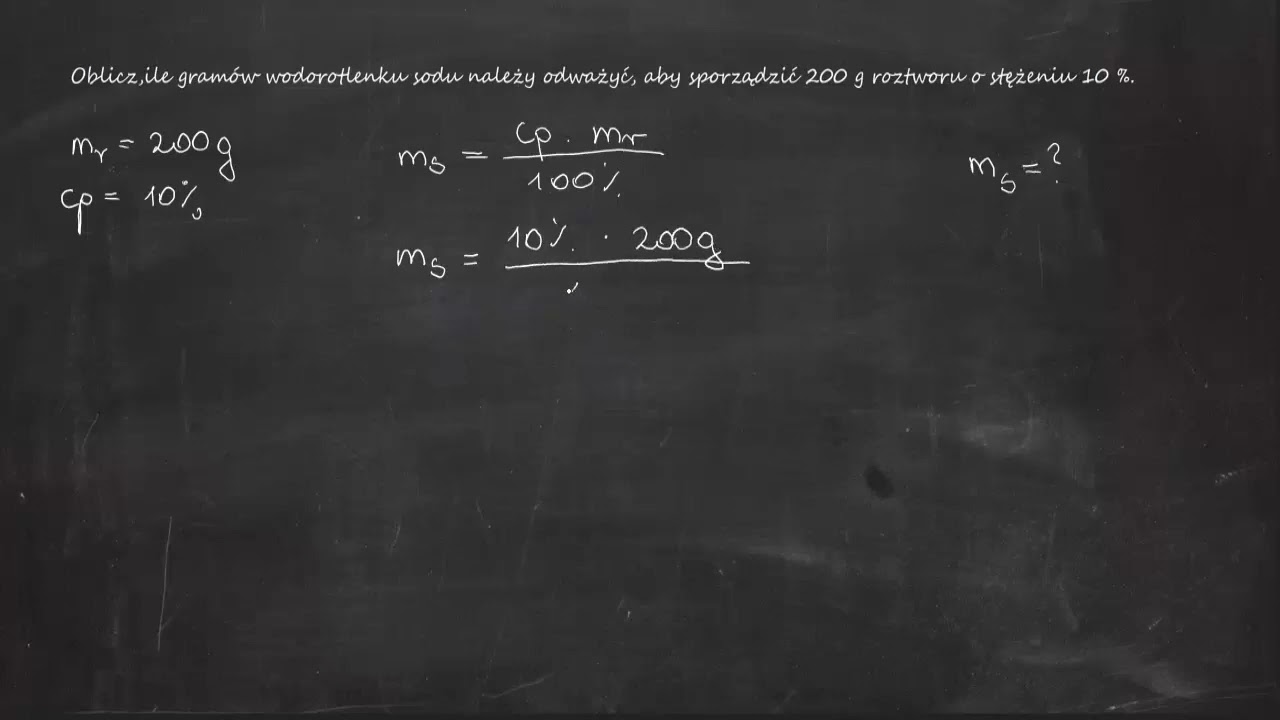 Oblicz,ile gramów wodorotlenku sodu należy odważyć, aby sporządzić 200 g roztworu o stężeniu 10 %.
mr = 200g
cp = 10%
ms = cp · mr / 100%
ms = 10% · 200g
ms = ?